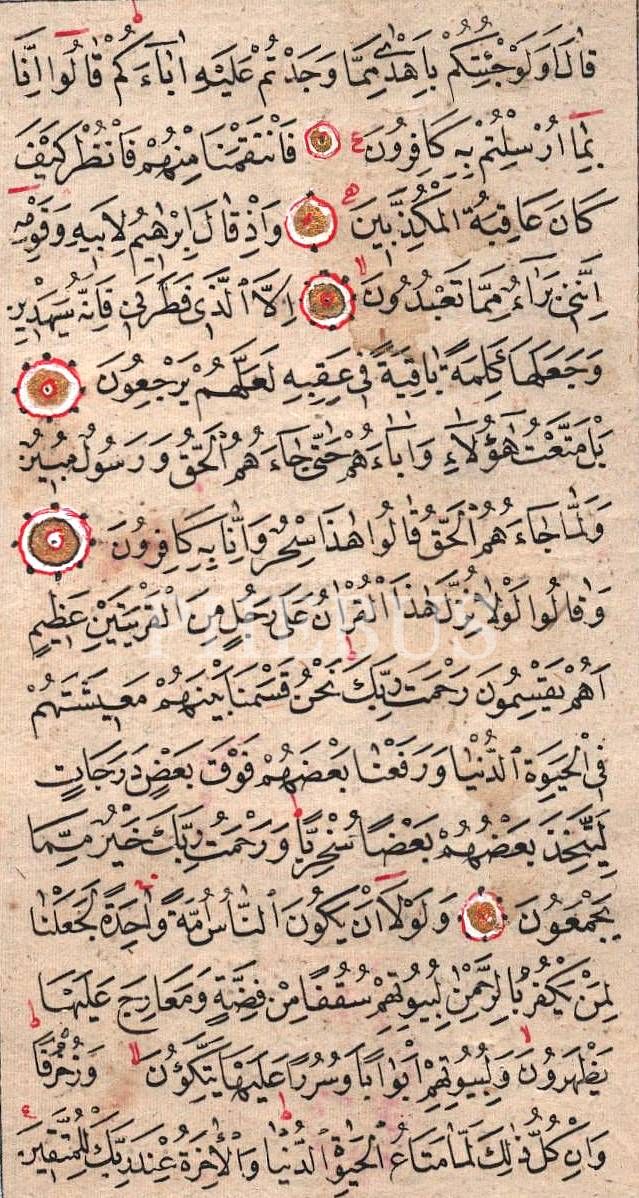 قَالَ اَوَلَوْ جِئْتُكُمْ بِاَهْدٰى مِمَّا وَجَدْتُمْ عَلَيْهِ اٰبَآءَكُمْ قَالُوا اِنَّا
بِمَا اُرْسِلْتُمْ بِهِ كَافِرُونَ فَانْتَقَمْنَا مِنْهُمْ فَانْظُرْ كَيْفَ
كَانَ عَاقِبَةُ الْمُكَذِّبِينَ وَاِذْ قَالَ اِبْرٰهِيمُ لِاَبِيهِ وَقَوْمِهِ
اِنَّنِى بَرَآءٌ مِمَّا تَعْبُدُونَ اِلَّا الَّذِى فَطَرَنِى فَاِنَّهُ سَيَهْدِينِ
وَجَعَلَهَا كَلِمَةً بَاقِيَةً فِى عَقِبِهِ لَعَلَّهُمْ يَرْجِعُونَ
بَلْ مَتَّعْتُ هٰٓؤُلَآءِ وَاٰبَآءَهُمْ حَتّٰى جَآءَهُمُ الْحَقُّ وَرَسُولٌ مُبِينٌ
وَلَمَّا جَآءَهُمُ الْحَقُّ قَالُوا هٰذَا سِحْرٌ وَاِنَّا بِهِ كَافِرُونَ
وَقَالُوا لَوْلَا نُزِّلَ هٰذَا الْقُرْاٰنُ عَلٰى رَجُلٍ مِنَ الْقَرْيَتَيْنِ عَظِيمٍ
PHEBUS
اَهُمْ يَقْسِمُونَ رَحْمَتَ رَبِّكَ نَحْنُ قَسَمْنَا بَيْنَهُمْ مَعِيشَتَهُمْ
فِى الْحَيٰوةِ الدُّنْيَا وَرَفَعْنَا بَعْضَهُمْ فَوْقَ بَعْضٍ دَرَجَاتٍ
لِيَتَّخِذَ بَعْضُهُمْ بَعْضًا سُخْرِيًّا وَرَحْمَتُ رَبِّكَ خَيْرٌ مِمَّا
يَجْمَعُونَ وَلَوْلَا اَنْ يَكُونَ النَّاسُ اُمَّةً وَاحِدَةً لَجَعَلْنَا
لِمَنْ يَكْفُرُ بِالرَّحْمٰنِ لِبُيُوتِهِمْ سُقُفًا مِنْ فِضَّةٍ وَمَعَارِجَ عَلَيْهَا
يَظْهَرُونَ وَلِبُيُوتِهِمْ اَبْوَابًا وَسُرُرًا عَلَيْهَا يَتَّكِؤُنَ وَزُخْرُفًا
وَاِنْ كُلُّ ذٰلِكَ لَمَّا مَتَاعُ الْحَيٰوةِ الدُّنْيَا وَالْاٰخِرَةُ عِنْدَ رَبِّكَ لِلْمُتَّقِينَ